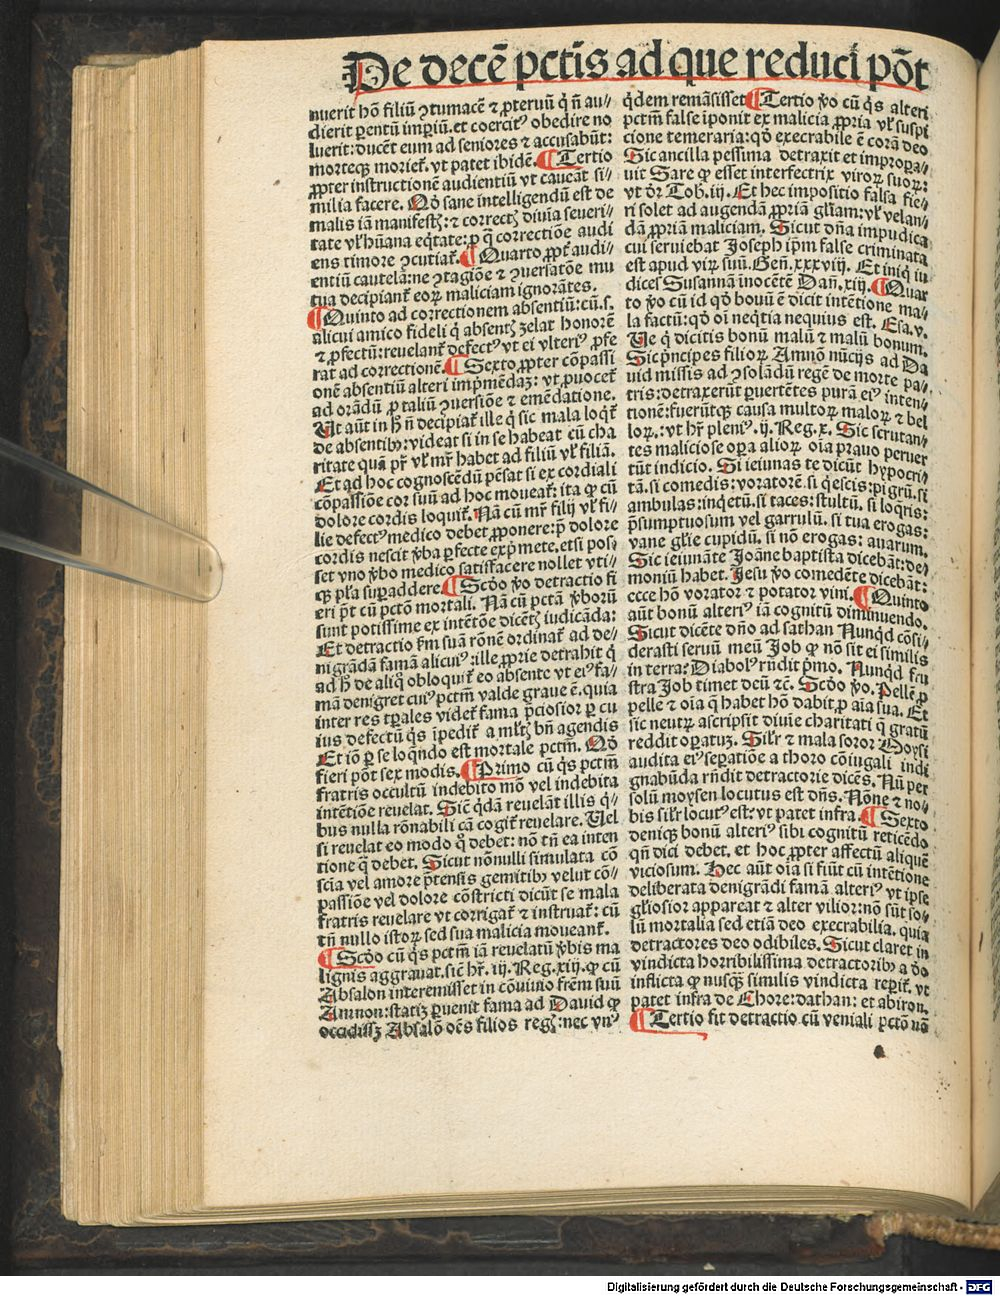 De decē pctīs ad que reduci pōt
nuerit hō filiū ꝯtumacē ⁊ ꝓteruū q̄ ñ au⸗
dierit ꝑentū imꝑiū. et coercitꝰ obedire no
luerit: ducēt eum ad seniores ⁊ accusabūt:
morteqꝫ morieť. vt patet ibidē. ¶ Tertio
ꝓpter instructionē audientiū vt caueāt si⸗
milia facere. Qḋ sane intelligendū est de
malis iā manifestꝭ: ⁊ correctꝭ diuīa seueri⸗
tate vł hūana eq̇tate: ꝑ q̄ correctiōe audi
ens timore ꝯcutiať. ¶ Quarto ꝓpť audi⸗
entiū cautelā: ne ꝯtagiōe ⁊ ꝯuersatōe mu
tua decipianť eoꝝ maliciam ignorātes.
¶ Quinto ad correctionem absentiū: cū. s.
alicui amico fideli q̇ absentꝭ zelať honorē
⁊ ꝓfectū: reuelanť defectꝰ vt ei vlteriꝰ ꝓfe
rat ad correctionē. ¶ Sexto ꝓpter cōpassi
onē absentiū alteri imṗmēdaꝫ: vt ꝓuoceť
ad orādū ꝓ taliū ꝯuersiōe ⁊ emēdatione.
Ut aūt in ꝧ ñ decipiať ille q̇ sic mala loq̇ť
de absentibꝰ: videat si in se habeat cū cha
ritate quā pr̄ vł mr̄ habet ad filiū vł filiā.
Et ad hoc cognoscēdū pēsat si ex cordiali
cōpassiōe cor suū ad hoc moueať: ita ꝙ cū
dolore cordis loquiť. Nā cū mr̄ filij vł fi⸗
lie defectꝰ medico debet ꝓponere: p̄ dolore
cordis nescit v̇ba ꝑfecte exṗmete. etsi pos⸗
set vno v̇bo medico satisfacere nollet vti⸗
qꝫ pła suꝑaddere. ¶ Scḋo v̇o detractio fi
eri p̄t cū pctō mortali. Nā cū pctā v̇borū
sunt potissime ex intētōe dicētꝭ iudicāda:
Et detractio ẜm suā rōnē ordinať ad de⸗
nigrādā famā alicuiꝰ: ille ꝓprie detrahit q̇
ad ꝧ de aliq̇ obloquiť eo absente vt eiꝰ fa⸗
mā denigret cuiꝰ pctm̄ valde graue ē. quia
inter res tꝑales videť fama p̄ciosior ꝑ cu
ius defectū q̇s īpediť a mltꝭ bñ agendis
Et iō ꝑ se loq̄ndo est mortale pctm̄. Qḋ
fieri pōt sex modis. ¶ Primo cū q̇s pctm̄
fratris occultū indebito mō vel indebita
intētiōe reuelat. Sic̄ q̇dā reuelāt illis q̇⸗
bus nulla rōnabili cā cogiť reuelare. Uel
si reuelat eo modo q̊ debet: nō tñ ea inten
tione q̄ debet. Sicut nōnulli simulata cō
scīa vel amore p̄tensis gemitibꝰ velut cō⸗
passiōe vel dolore cōstricti dicūt se mala
fratris reuelare vt corrigať ⁊ instruať: cū
tñ nullo istoꝝ sed sua malicia moueanť.
¶ Scḋo cū q̇s pctm̄ iā reuelatū v̇bis ma
lignis aggrauat. sic̄ hr̄. ij. Reg. xiij. ꝙ cū
Absalon interemisset in cōuiuio frēm suū
Amnon: statiꝫ ꝑuenit fama ad Dauid ꝙ
occidissꝫ Absalō oēs filios regꝭ: nec vnꝰ
q̇dem remāsisset. ¶ Tertio v̇o cū q̇s alteri
pctm̄ false īponit ex malicia ꝓpria vł suspi
cione temeraria: qḋ execrabile ē corā deo
Sic ancilla pessima detraxit et impropa⸗
uit Sare ꝙ esset interfectrix viroꝝ suoꝝ:
vt dr̄ Tob. iij. Et hec impositio falsa fie⸗
ri solet ad augendā ꝓpriā głiam: vł velan⸗
dā ꝓpriā maliciam. Sicut dn̄a impudica
cui seruiebat Joseph ip̄m false criminata
est apud viꝝ suū. Geñ. xxxviij. Et iniq̇ iu
dices Susannā inocētē Dañ. xiij. ¶ Quar
to v̇o cū id qḋ bouū ē dicit intētione ma⸗
la factū: qḋ oī neq̇tia nequius est. Esa. v.
Ue q̇ dicitis bonū malū ⁊ malū bonum.
Sic p̄ncipes filioꝝ Amnō nūcijs ad Da
uid missis ad ꝯsolādū regē de morte pa⸗
tris: detraxerūt ꝑuertētes purā eiꝰ inten⸗
tionē: fuerūtqꝫ causa multoꝝ maloꝝ ⁊ bel
loꝝ.: vt hr̄ pleniꝰ. ij. Reg. x. Sic scrutan⸗
tes maliciose oꝑa alioꝝ oīa prauo peruer
tūt indicio. Si ieiunas te dicūt hypocri⸗
tā. si comedis: voratorē. si q̇escis: pigrū. si
ambulas: inq̇etū. si taces: stultū. si loq̇ris:
p̄sumptuosum vel garrulū. si tua erogas:
vane głie cupidū. si nō erogas: auarum.
Sic ieiunāte Joāne baptista dicebāt: de⸗
moniū habet. Jesu v̇o comedēte dicebāt:
ecce hō vorator ⁊ potator vini. ¶ Quinto
aūt bonū alteriꝰ iā cognitū diminuendo.
Sicut dicēte dn̄o ad sathan Nunqḋ cōsi⸗
derasti seruū meū Job ꝙ nō sit ei similis
in terra: Diabolꝰ rn̄dit ṗmo. Nunqḋ fru
stra Job timet deū ⁊c̄. Scḋo v̇o. Pellē ꝓ
pelle ⁊ oīa q̄ habet hō dabit ꝓ aīa sua. Et
sic neutꝝ ascripsit diuīe charitati q̇ gratū
reddit oꝑatuꝫ. Silr̄ ⁊ mala soror Moysi
audita eiꝰ seꝑatiōe a thoro cōiugali indi
gnabūda rn̄dit detractorie dicēs. Nū per
solū moysen locutus est dn̄s. Nōne ⁊ no⸗
bis silr̄ locutꝰ est: vt patet infra. ¶ Sexto
deniqꝫ bonū alteriꝰ sibi cognitū reticēdo
qñ dici debet. et hoc ꝓpter affectū aliquē
viciosum. Hec aūt oīa si fiūt cū intētione
deliberata denigrādi famā alteriꝰ vt ipse
głiosior appareat ⁊ alter vilior: nō sūt so⸗
lū mortalia sed etiā deo execrabilia. quia
detractores deo odibiles. Sicut claret in
vindicta horribilissima detractoribꝰ a ḋo
inflicta ꝙ nusqꝫ similis vindicta reꝑiť. vt
patet infra de Chore: dathan: et abiron.
¶ Tertio fit detractio cū veniali pctō nā
Digitalisierung gefördert durch die Deutsche Forschungsgemeinschaft - DFG